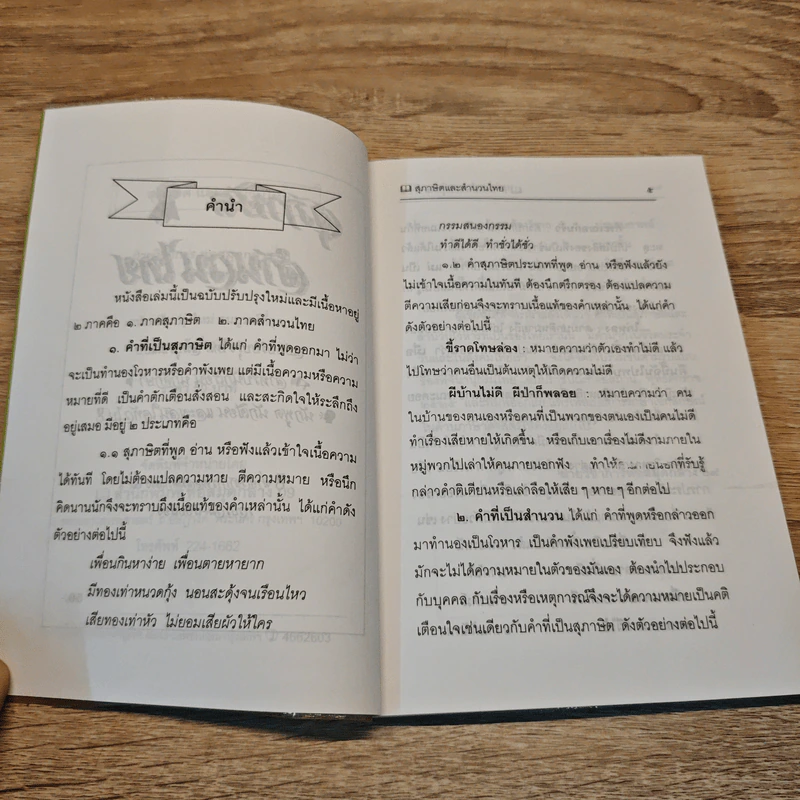 คำนำ
หนังสือเล่มนี้เป็นฉบับปรับปรุงใหม่และมีเนื้อหาอยู่
๒ ภาคคือ ๑. ภาคสุภาษิต ๒. ภาคสำนวนไทย
๑. คำที่เป็นสุภาษิต ได้แก่ คำที่พูดออกมา ไม่ว่า
จะเป็นทำนองโวหารหรือคำพังเพย แต่มีเนื้อความหรือความ
หมายที่ดี เป็นคำตักเตือนสั่งสอน และสะกิดใจให้ระลึกถึง
อยู่เสมอ มีอยู่ ๒ ประเภทคือ
๑.๑ สุภาษิตที่พูด อ่าน หรือฟังแล้วเข้าใจเนื้อความ
ได้ทันที โดยไม่ต้องแปลความหาย ตีความหมาย หรือนึก
คิดนานนักจึงจะทราบถึงเนื้อแท้ของคำเหล่านั้น ได้แก่คำดัง
ตัวอย่างต่อไปนี้
เพื่อนกินหาง่าย เพื่อนตายหายาก
มีทองเท่าหนวดกุ้ง นอนสะดุ้งจนเรือนไหว
เสียทองเท่าหัว ไม่ยอมเสียผัวให้ใคร
สุภาษิตและสำนวนไทย ๕
กรรมสนองกรรม
ทำดีได้ดี ทำชั่วได้ชั่ว
๑.๒ คำสุภาษิตประเภทที่พูด อ่าน หรือฟังแล้วยัง
ไม่เข้าใจเนื้อความในทันที ต้องนึกตรึกตรอง ต้องแปลความ
ตีความเสียก่อนจึงจะทราบเนื้อแท้ของคำเหล่านั้น ได้แก่คำ
ดังตัวอย่างต่อไปนี้
ขี้ราดโทษล่อง : หมายความว่าตัวเองทำไม่ดี แล้ว
ไปโทษว่าคนอื่นเป็นต้นเหตุให้เกิดความไม่ดี
ผีบ้านไม่ดี ผีป่าก็พลอย : หมายความว่า คน
ในบ้านของตนเองหรือคนที่เป็นพวกของตนเองเป็นคนไม่ดี
ทำเรื่องเสียหายให้เกิดขึ้น หรือเก็บเอาเรื่องไม่ดีงามภายใน
หมู่พวกไปเล่าให้คนภายนอกฟัง ทำให้ที่รับรู้
กล่าวคำติเตียนหรือเล่าลือให้เสีย ๆ หาย ๆ อีกต่อไป
๒. คำที่เป็นสำนวน ได้แก่ คำที่พูดหรือกล่าวออก
มาทำนองเป็นโวหาร เป็นคำพังเพยเปรียบเทียบ จึงฟังแล้ว
มักจะไม่ได้ความหมายในตัวของมันเอง ต้องนำไปประกอบ
กับบุคคล กับเรื่องหรือเหตุการณ์จึงจะได้ความหมายเป็นคติ
เตือนใจเช่นเดียวกับคำที่เป็นสุภาษิต ดังตัวอย่างต่อไปนี้